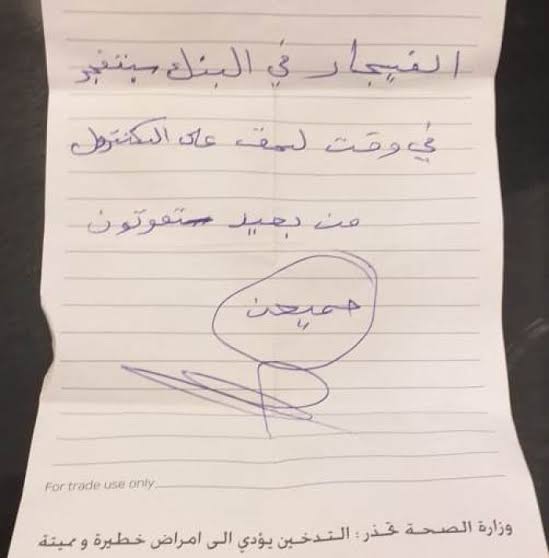 الفيجار في البنك ستنفجر
في وقت لحق على الكنترول
من بعيد ستموتون
جميعن
For trade use only
وزارة الصحة تحذر : التدخين يؤدي الى امراض خطيرة و مميتة